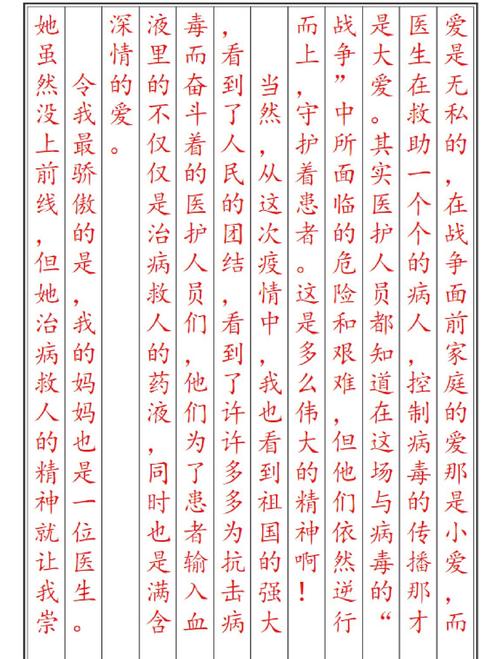 爱是无私的，在战争面前家庭的爱那是小爱，而
医生在救助一个个的病人，控制病毒的传播那才
是大爱。其实医护人员都知道在这场与病毒的“
战争”中所面临的危险和艰难，但他们依然逆行
而上，守护着患者。这是多么伟大的精神啊！
当然，从这次疫情中，我也看到祖国的强大
，看到了人民的团结，看到了许许多多为抗击病
毒而奋斗着的医护人员们，他们为了患者输入血
液里的不仅仅是治病救人的药液，同时也是满含
深情的爱。
令我最骄傲的是，我的妈妈也是一位医生。
她虽然没上前线，但她治病救人的精神就让我崇